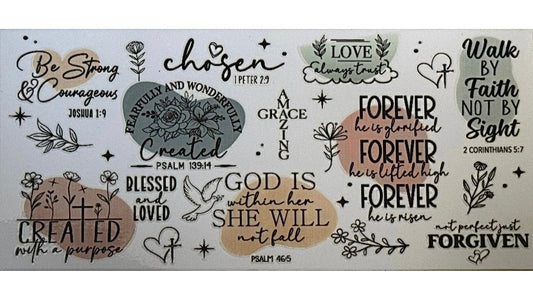 Be Strong
& Courageous
JOSHUA 1:9
chosen
1 PETER 2:9
LOVE
always trust
Walk
BY
Faith
NOT BY
Sight
2 CORINTHIANS 5:7
FEARFULLY AND WONDERFULLY
Created
PSALM 139:14
AMAZING
GRACE
FOREVER
he is glorified
FOREVER
he is lifted high
FOREVER
he is risen
CREATED
with a purpose
BLESSED
and
LOVED
GOD IS
within her
SHE WILL
not fall
PSALM 46:5
not perfect just
FORGIVEN